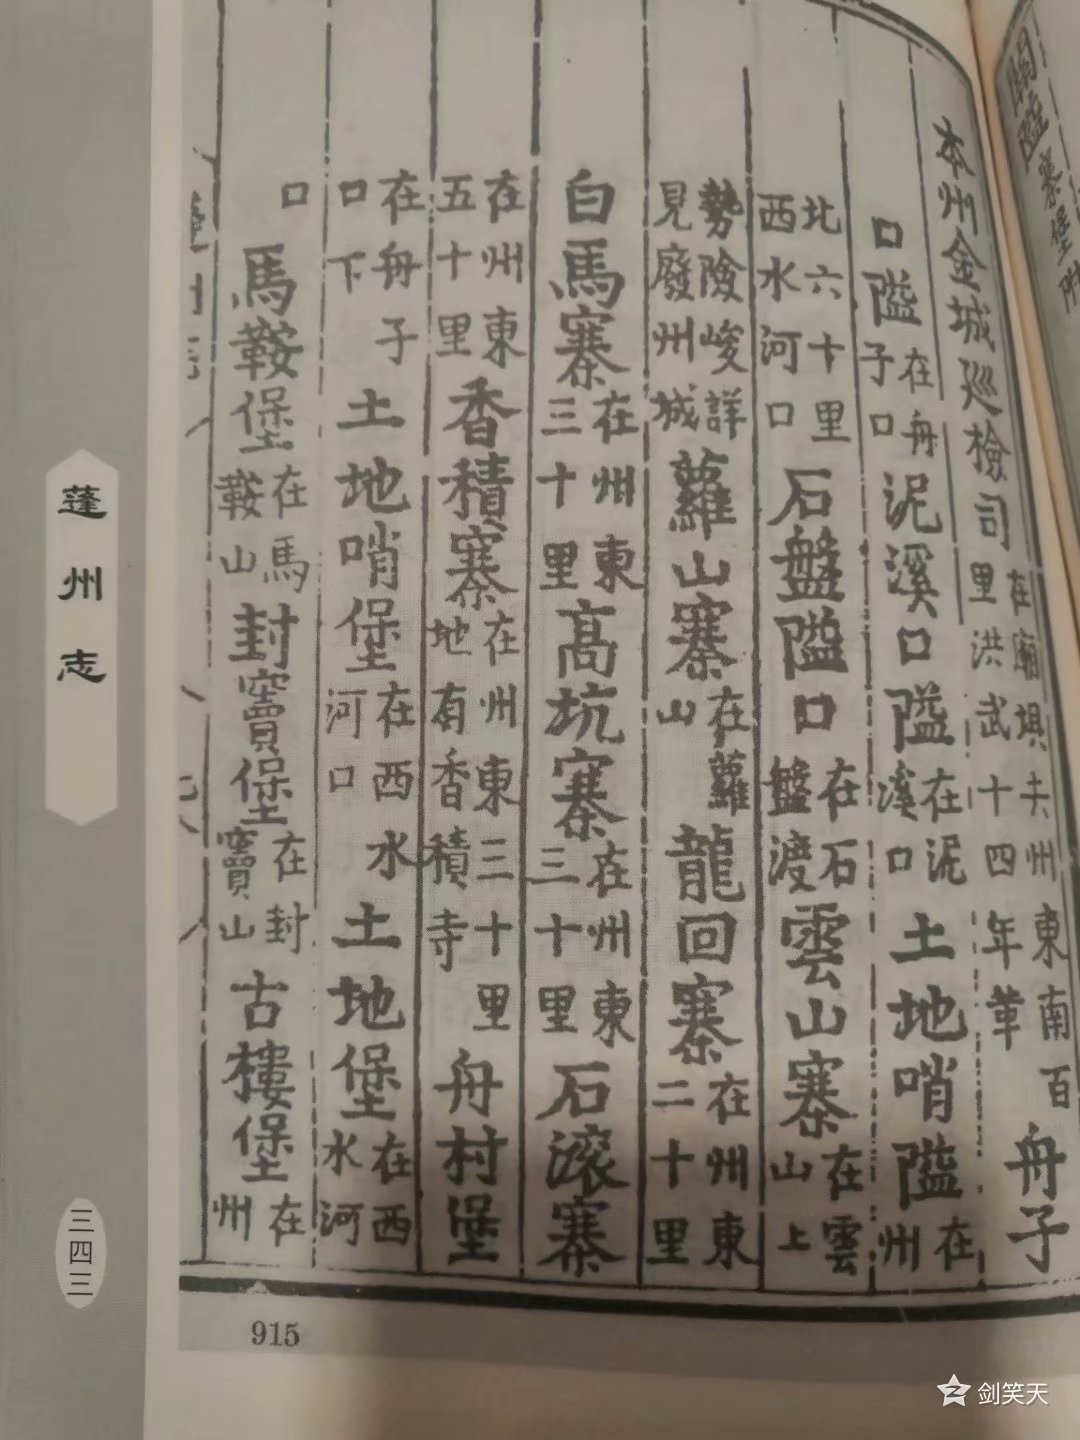 關隘寨堡附
本州金城巡檢司在廟垻去州東南百里洪武十四年革舟子
口隘在舟子口泥溪口隘在泥溪口土地哨隘在州
北六十里西水河口石盤隘口在石盤渡雲山寨在雲山上
勢險峻詳見廢州城蘿山寨在蘿山龍回寨在州東二十里
白馬寨在州東三十里高坑寨在州東三十里石滚寨
在州東五十里香積寨在州東三十里地有香積寺舟村堡
在舟子口下土地哨堡在西水河口土地堡在西水河
口馬鞍堡在馬鞍山封竇堡在封竇山古樓堡在州
蓬州志
蓬州志
三四三
915
剑笑天